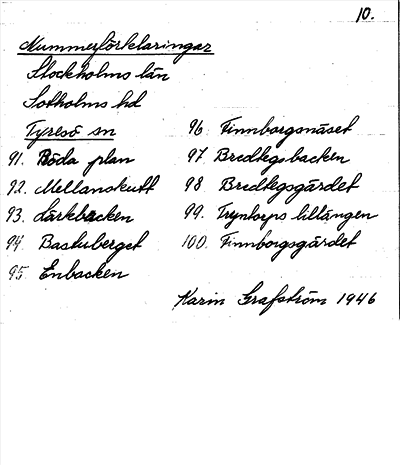 10.
Nummerförklaringar
Stockholms län
Sotholms hd
Tyresö sn
91. Röda plan
92. Mellanskutt
93. Lärkbacken
94. Bastuberget
95. Enbacken
96. Finnborgsnäset
97. Bredtegsbacken
98 Bredtegsgärdet
99. Tryntorps lillängen
100. Finnborgsgärdet
Karin Grafström 1946